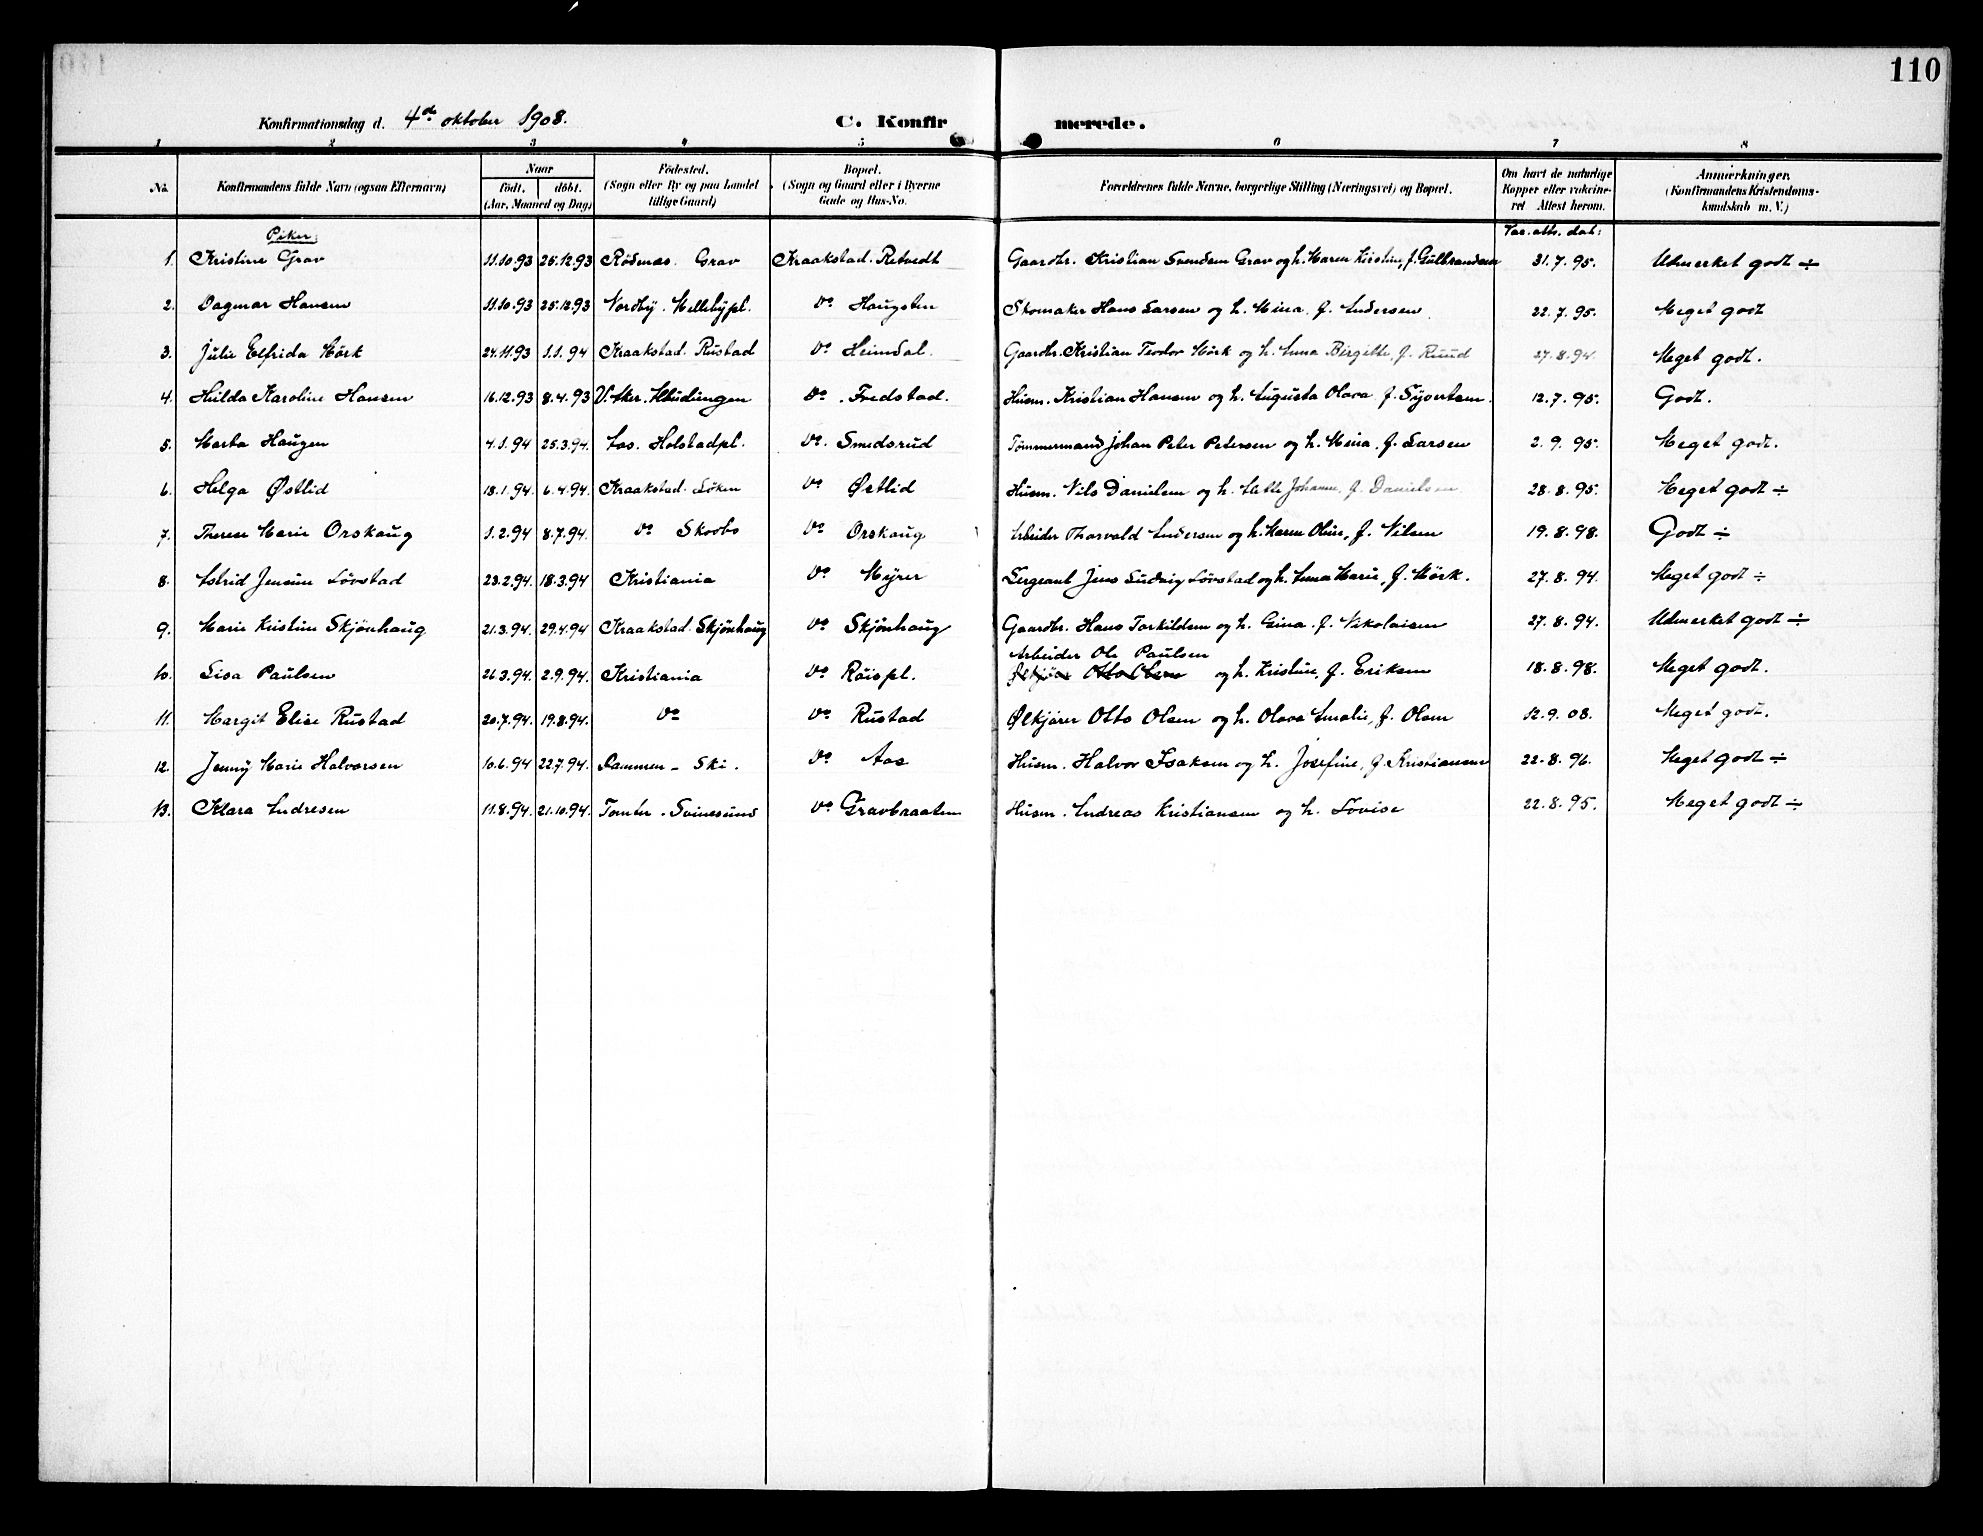 110
Konfirmationsdag d. 4de oktober 1908. C. Konfirmerede.
1 2 3 4 5 6 7 8
No. Konfirmandens fulde Navn (ogsaa Efternavn) Naar født. døbt. (Aar, Maaned og Dag) Fødested. (Sogn eller By og paa Landet tillige Gaard) Bopæl. (Sogn og Gaard eller i Byerne Gade og Hus-No. Forældrenes fulde Navne, borgerlige Stilling (Næringsvei) og Bopæl. Om havt de naturlige Kopper eller vaksineret. Attest herom. Anmærkninger. (Konfirmandens Kristendomskundskab m. V.)
Piker: Vac. atts. dat:
1. Kristine Grav 11.10.93 26.12.93 Rödenes. Grav Kraakstad. Retvedt Gaardbr. Kristian Svendsen Grav og h. Maren Kristine, f. Gulbrandsen 31.7.95. Udmerket godt ÷
2. Dagmar Hansen 11.10.93 25.12.93 Nordby. Mellebypl. Do Haugsten Skomaker Hans Larsen og h. Mina f. Andersen 22.7.95. Meget godt
3. Julie Elfrida Mörk 24.11.93 1.1.94 Kraakstad. Rustad Do Heimdal. Gaardbr. Kristian Teodor Mörk og h. Anna Birgitte, f. Ruud 27.8.94. Meget godt.
4. Hilda Karoline Hansen 16.12.93 8.4.93 V. Aker. Do. Fredstad. Husm. Kristian Hansen og h. Augusta Olava f. Syvertsen. 12.7.95. Godt.
5. Marta Haugen 4.1.94 25.3.94. Aas. Holstadpl. Do. Smedsrud Tömmermand Johan Peter Petersen og h. Mina. f. Larsen 2.9.95. Meget godt.
6. Helga Østlid 18.1.94. 6.4.94. Kraakstad. Löken Do Østlid Husm. Nils Danielsen og h. Mette Johanne, f. Danielsen 28.8.95. Meget godt ÷
7. Therese Marie Orskaug 1.2.94 8.7.94. Do Skovbo Do Orskaug Arbeider Thorvald Andersen og h. Maren Oline, f. Nilsen 19.8.98. Godt ÷
8. Astrid Jensine Lövstad 23.2.94. 18.3.94 Kristiania Do Myrer Sergeant Jens Ludvig Lövstad og h. Anna Marie, f. Mörk. 27.8.94. Meget godt ÷
9. Marie Kristine Skjönhaug 21.3.94. 29.4.94 Kraakstad. Skjönhaug Do Skjönhaug Gaardbr. Hans Torkildsen og h. Gina f. Nikolaisen 27.8.94. Udmerket godt ÷
Arbeider Ole Paulsen
10. Lisa Paulsen 26.3.94. 2.9.94. Kristiania Do Röispl. Ølkjörer Otto Olsen og h. Kristine, f. Eriksen 18.8.98. Meget godt.
11. Margit Elise Rustad 20.7.94. 19.8.94. Do Do Rustad Ølkjörer Otto Olsen og h. Olava Amalie, f. Olsen 12.9.08. Meget godt.
12. Jenny Marie Halvorsen 10.6.94 22.7.94. Dammen - Ski. Do Aas Husm. Halvor Isaksen og h. Josefine, f. Kristiansen 22.8.96. Meget godt ÷
13. Klara Andresen 11.8.94. 21.10.94. Tomter. Svinesund Do Gravbraaten Husm. Andreas Kristiansen og h. Lovise 22.8.95. Meget godt ÷